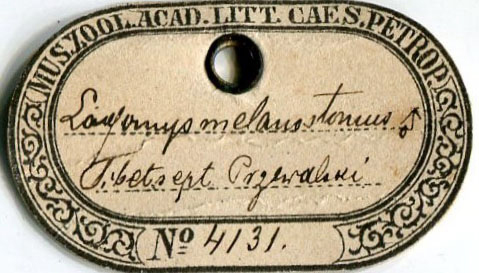 MUS. ZOOL. ACAD. LITT. CAES. PETROP.
Lagomys melanostomus ♂
Tibet sept. Przewalski
No 4131.